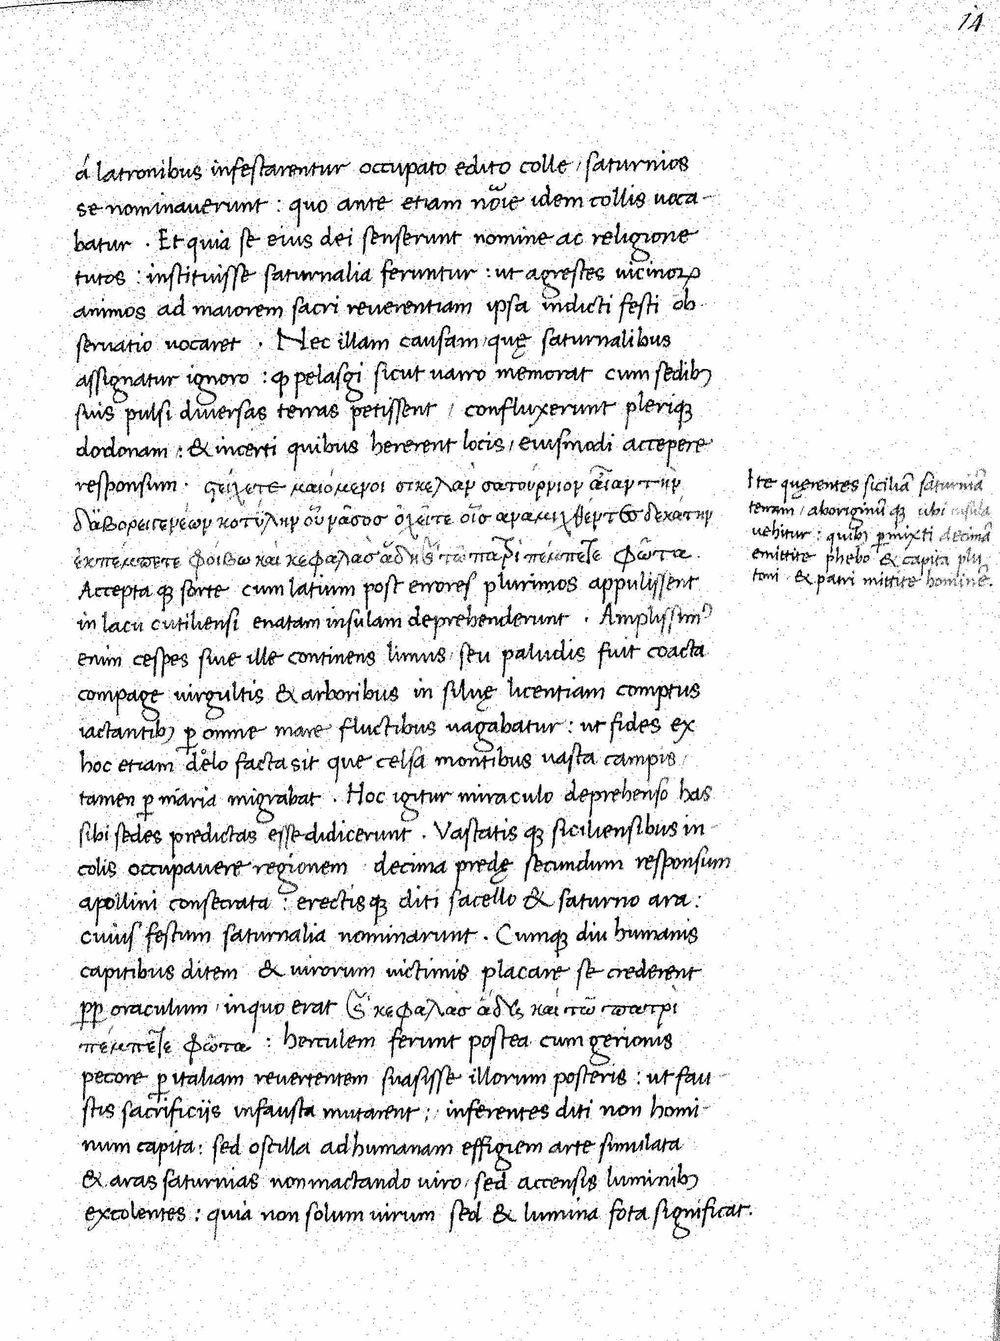 14
á latronibus infestarentur occupato edito colle / saturnios
se nominaverunt : quo ante etiam nõie idem collis voca-
batur . Et quia se eius dei senserunt nomine ac religione
tutos : instituisse saturnalia feruntur : ut agrestes vicinoꝝ
animos ad maiorem sacri reverentiam ipsa indicti festi ob-
servatio vocaret . Nec illam causam / quę saturnalibus
assignatur ignoro : ꝙ pelasgi sicut varro memorat cum sedibꝫ
suis pulsi diversas terras petissent / confluxerunt pleriqꝫ
dodonam : & incerti quibus hererent locis / eiusmodi accepere
responsum . ςείχετε μαιόμενοι σικελὰν σατούρνιον αἶαν τὴν
δ' ἀβορειγενέων κοτύλην οὗ νᾶσος ὀχεῖτε οἷσ αναμιχθέντες δεκατην
ἐκπέμπετε φοιβω και κεφαλὰσ ἄδη τῶ πατρὶ πέμπετε φῶτα .
Accepta qꝫ sorte cum latium post errores plurimos appulissent
in lacu cutiliensi enatam insulam deprehenderunt . Amplissimꝰ
enim cespes sive ille continens limus / seu paludis fuit coacta
compage virgultis & arboribus in silvę licentiam comptus
iactantibꝫ ꝑ omne mare fluctibus vagabatur : ut fides ex
hoc etiam delo facta sit que celsa montibus vasta campis /
tamen ꝑ maria migrabat . Hoc igitur miraculo deprehenso has
sibi sedes predictas esse didicerunt . Vastatis qꝫ siciliensibus in-
colis occupavere regionem decima predę secundum responsum
apollini consecrata : erectis qꝫ diti sacello & saturno ara :
cuius festum saturnalia nominarunt . Cumqꝫ diu humanis
capitibus ditem & virorum victimis placare se crederent
ꝓꝑ oraculum / in quo erat κεφαλὰσ ἄδης και τῶ πατρὶ
πέμπετε φῶτα : herculem ferunt postea cum gerionis
pecore ꝑ italiam revertentem suasisse illorum posteris : ut fau-
stis sacrificiis infausta mutarent : inferentes diti non homi-
num capita : sed oscilla ad humanam effigiem arte simulata
& aras saturnias non mactando viro / sed accensis luminibꝫ
excolentes : quia non solum virum sed & lumina fota significat .
Ite querentes siciliã saturniã
terram / aboriginũ qꝫ ubi insula
vehitur : quibꝫ ꝑmixti decimã
emittite phebo & capita plu
toni & patri mittite hominẽ .